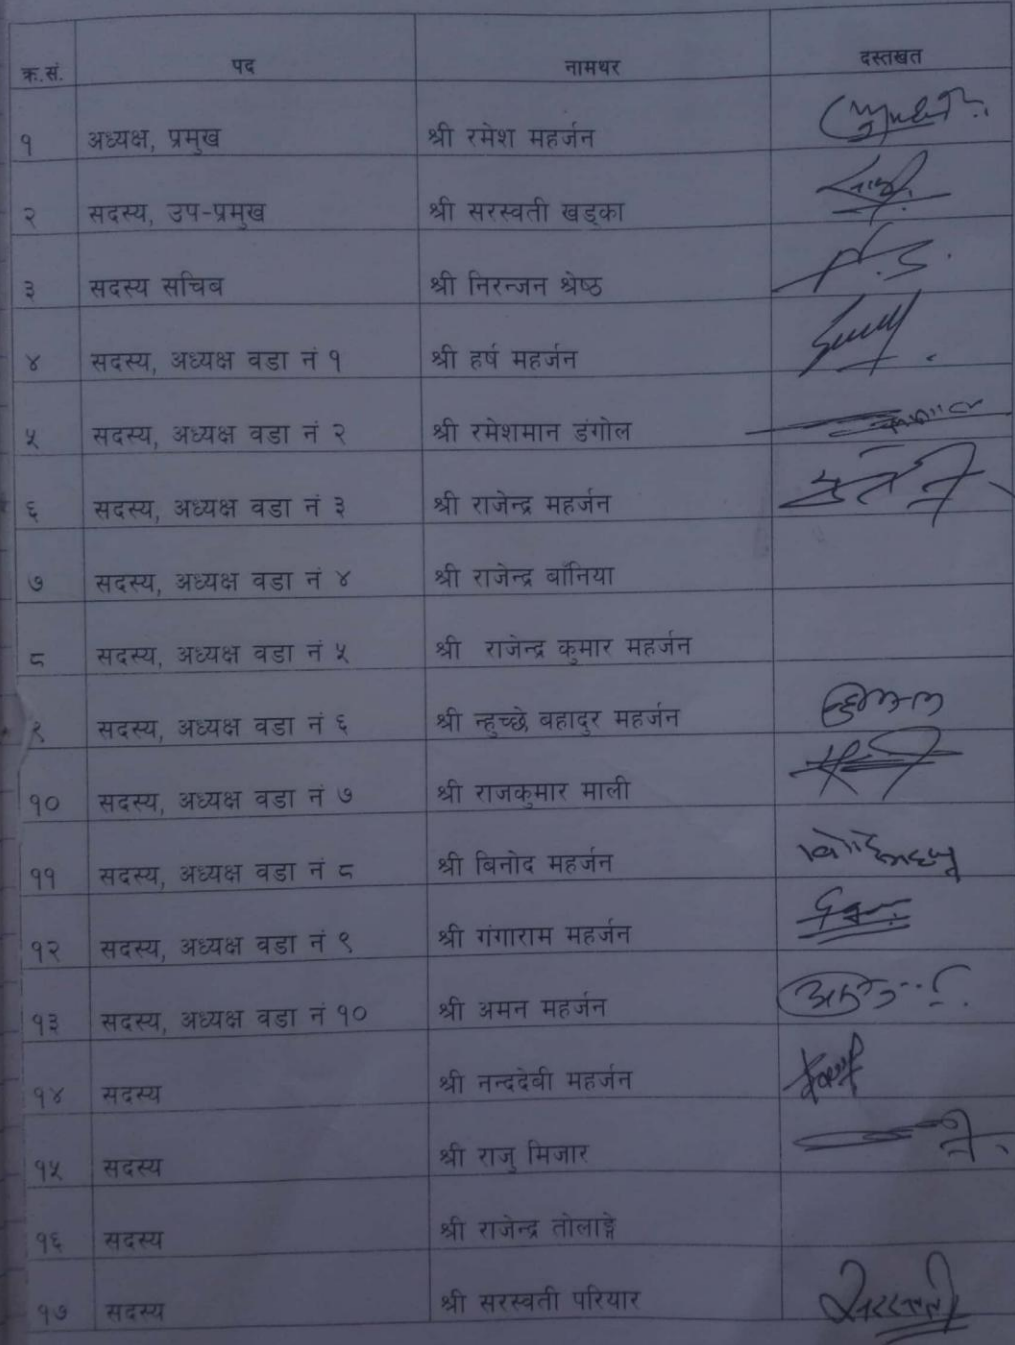 क्र.सं. पद नामथर दस्तखत
१ अध्यक्ष, प्रमुख श्री रमेश महर्जन
२ सदस्य, उप-प्रमुख श्री सरस्वती खड्का
३ सदस्य सचिब श्री निरन्जन श्रेष्ठ
४ सदस्य, अध्यक्ष वडा नं १ श्री हर्ष महर्जन
५ सदस्य, अध्यक्ष वडा नं २ श्री रमेशमान डंगोल
६ सदस्य, अध्यक्ष वडा नं ३ श्री राजेन्द्र महर्जन
७ सदस्य, अध्यक्ष वडा नं ४ श्री राजेन्द्र बाँनिया
८ सदस्य, अध्यक्ष वडा नं ५ श्री राजेन्द्र कुमार महर्जन
९ सदस्य, अध्यक्ष वडा नं ६ श्री न्हुच्छे बहादुर महर्जन
१० सदस्य, अध्यक्ष वडा नं ७ श्री राजकुमार माली
११ सदस्य, अध्यक्ष वडा नं ८ श्री बिनोद महर्जन
१२ सदस्य, अध्यक्ष वडा नं ९ श्री गंगाराम महर्जन
१३ सदस्य, अध्यक्ष वडा नं १० श्री अमन महर्जन
१४ सदस्य श्री नन्ददेबी महर्जन
१५ सदस्य श्री राजु मिजार
१६ सदस्य श्री राजेन्द्र तोलाङ्गे
१७ सदस्य श्री सरस्वती परियार सरस्वती